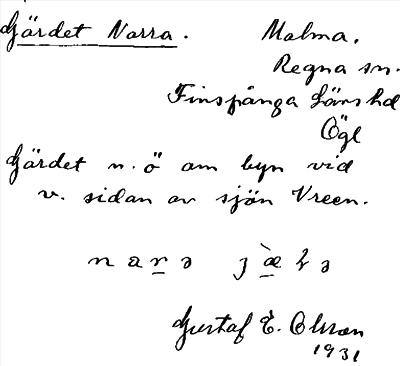 Gärdet Norra.
Malma.
Regna sn.
Finspånga läns hd
Ögl
Gärdet n. ö om byn vid
v. sidan av sjön Vreen.
Gustaf E. Olsson
1931